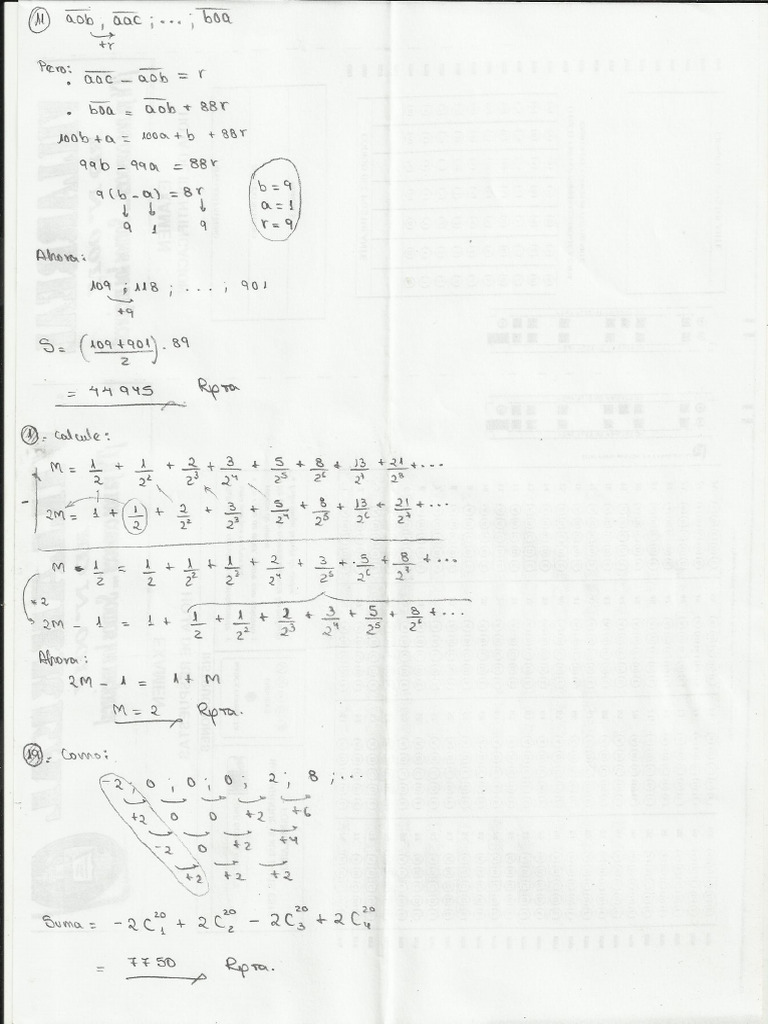 11 a0b , aac ; ... ; b0a
+r
Pero: • a0c - a0b = r
• b0a = a0b + 88r
100b + a = 100a + b + 88r
99b - 99a = 88r
9(b - a) = 8r
9 1 9
b = 9
a = 1
r = 9
Ahora:
109 ; 118 ; ... ; 901
+9
S = ((109+901)/2) . 89
= 44945 Rpta
1.- Calcule:
M = 1/2 + 1/2² + 2/2³ + 3/2⁴ + 5/2⁵ + 8/2⁶ + 13/2⁷ + 21/2⁸ + ...
- 2M = 1 + 1/2 + 2/2² + 3/2³ + 5/2⁴ + 8/2⁵ + 13/2⁶ + 21/2⁷ + ...
M - 1/2 = 1/2 + 1/2² + 1/2³ + 2/2⁴ + 3/2⁵ + 5/2⁶ + 8/2⁷ + ...
×2
2M - 1 = 1 + 1/2 + 1/2² + 2/2³ + 3/2⁴ + 5/2⁵ + 8/2⁶ + ...
Ahora:
2M - 1 = 1 + M
M = 2 Rpta.
19.- Como:
-2 ; 0 ; 0 ; 0 ; 2 ; 8 ; ...
+2 0 0 +2 +6
-2 0 +2 +4
+2 +2 +2
Suma = -2C₁²⁰ + 2C₂²⁰ - 2C₃²⁰ + 2C₄²⁰
= 7750 Rpta.